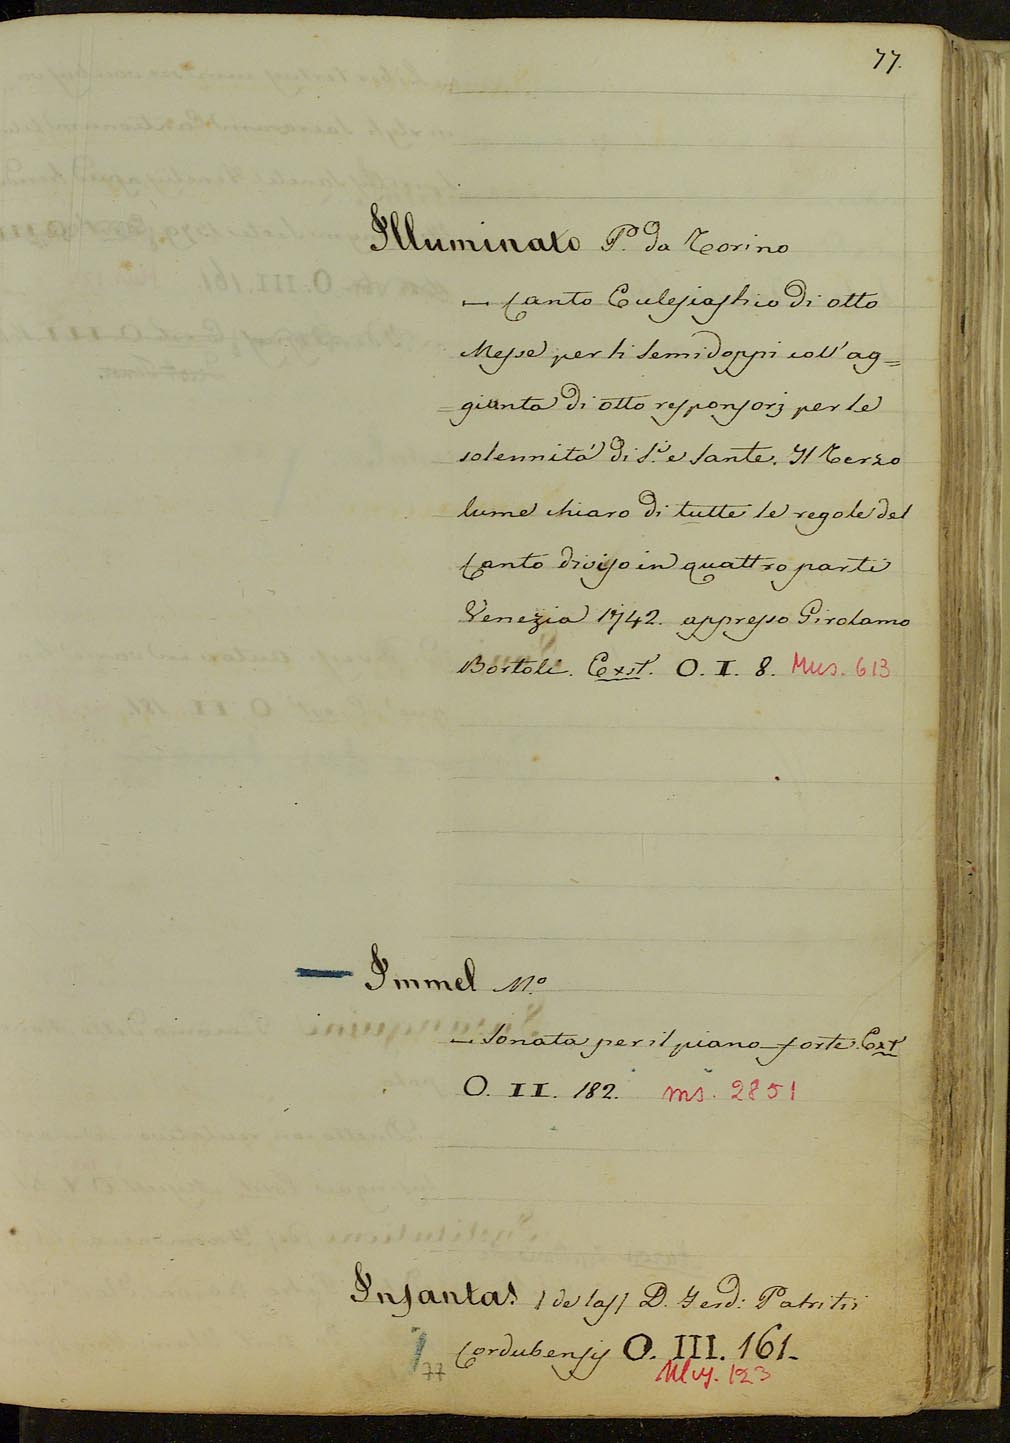 77.
Illuminato P. da Torino
— Canto Eclesiastico di otto
Messe per li semidoppi coll' ag=
=giunta di otto responsorj per le
solennità di S.i e Sante. Il Terzo
lume chiaro di tutte le regole del
Canto diviso in quattro parti
Venezia 1742. appresso Girolamo
Bortoli. Exst. O. I. 8. Mus. 613
— Immel M.o
— Sonata per il piano-forte. Ext
O. II. 182. ms. 2851
Infantas (de las) D. Ferd: Patritii
Cordubensis O. III. 161-
77 Mus. 123